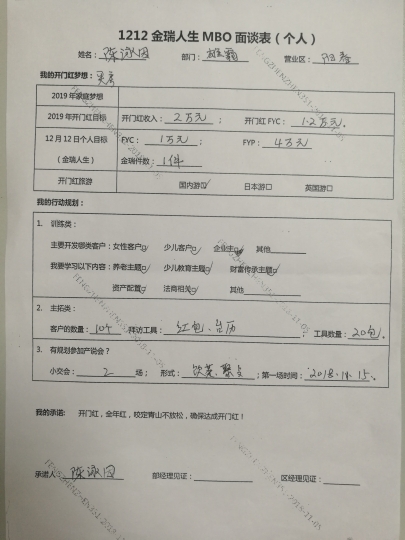 1212 金瑞人生 MBO 面谈表（个人）
姓名： 陈泳因 部门： 雄霸 营业区： 阳春
我的开门红梦想： 买房
2019 年家庭梦想
2019 年开门红目标 开门红收入： 2万元 ； 开门红 FYC： 1.2万元 .
12 月 12 日个人目标 FYC： 1万元 ； FYP： 4万元
（金瑞人生） 金瑞件数： 1件
开门红旅游 国内游☑ 日本游□ 英国游□
我的行动规划：
1. 训练类：
主要开发哪类客户：女性客户☑ 少儿客户☑ 企业主☑ 其他
我要学习以下内容：养老主题☑ 少儿教育主题☑ 财富传承主题☑
资产配置☑ 法商相关☑ 其他
2. 主拓类：
客户的数量： 10个 拜访工具： 红包、台历 ； 工具数量： 20包 .
3. 有规划参加产说会？
小交会： 2 场； 形式： ；第一场时间： 2018.11.15 .
我的承诺： 开门红，全年红，咬定青山不放松，确保达成开门红！
承诺人： 陈泳因 部经理见证： 区经理见证：